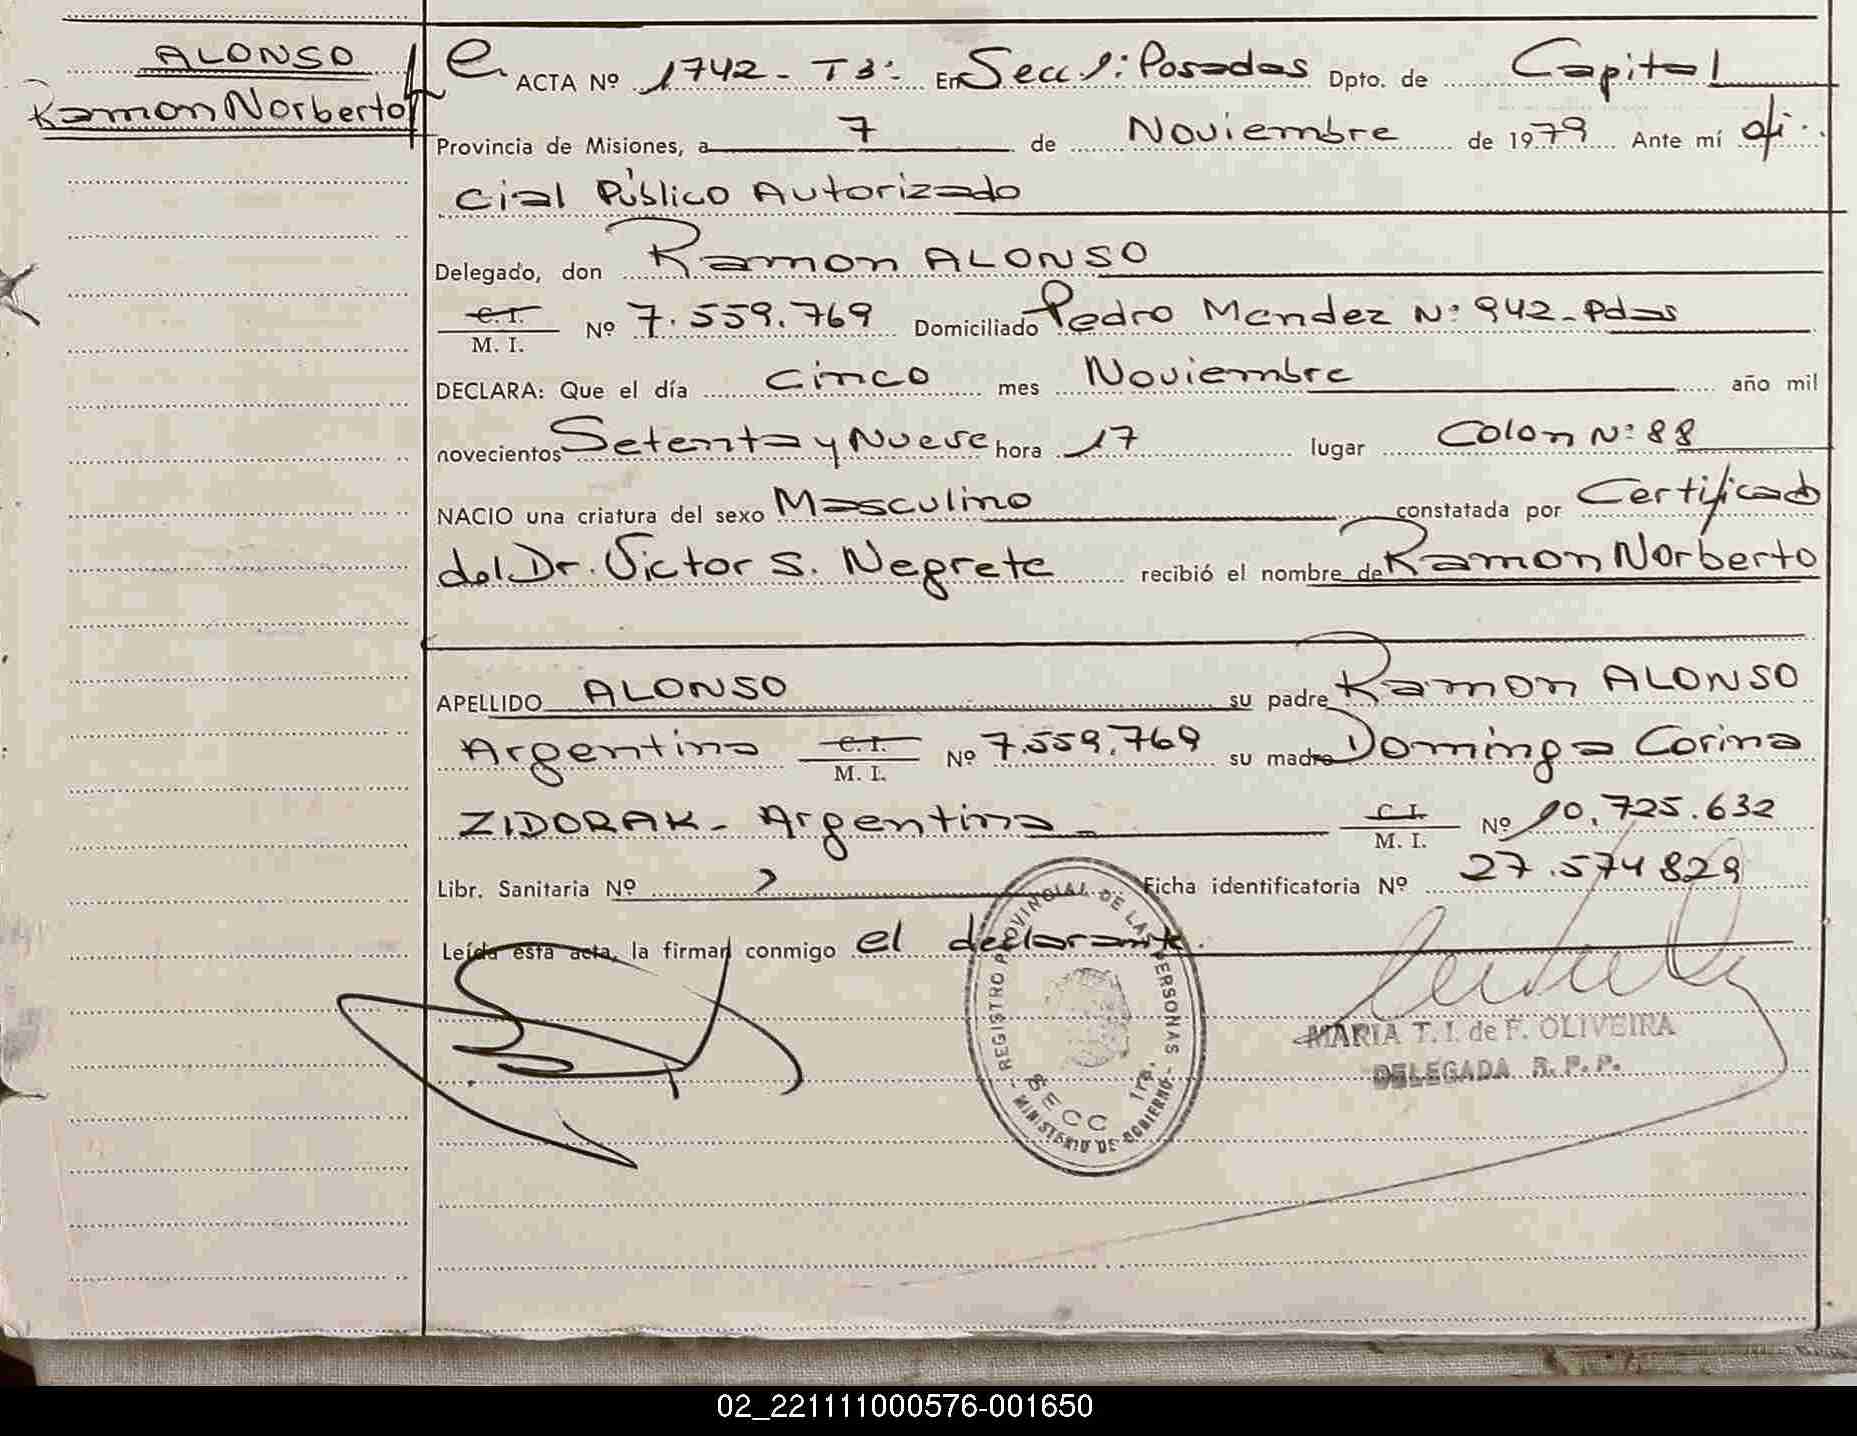 ALONSO
Ramon Norberto
e ACTA Nº 1742 - T 3º- En Secc 1: Posadas Dpto. de Capital
Provincia de Misiones, a 7 de Noviembre de 1979 Ante mí ofi-
cial Público Autorizado
Delegado, don Ramon ALONSO
C. I. M. I. Nº 7.559.769 Domiciliado Pedro Mendez Nº 942 - Pdas
DECLARA: Que el día cinco mes Noviembre año mil
novecientos Setenta y Nueve hora 17 lugar Colon Nº 88
NACIO una criatura del sexo Masculino constatada por Certificado
del Dr. Victor S. Negrete recibió el nombre de Ramon Norberto
APELLIDO ALONSO su padre Ramon ALONSO
Argentino C. I. M. I. Nº 7.559.769 su madre Dominga Corina
ZIDORAK - Argentina - C. I. M. I. Nº 10.725.632
Libr. Sanitaria Nº Ficha identificatoria Nº 27.574829
Leída esta acta, la firman conmigo el declarante.
- REGISTRO PROVINCIAL DE LAS PERSONAS -
SECC 1ra.
MINISTERIO DE GOBIERNO
MARIA T. I. de F. OLIVEIRA
DELEGADA R. P. P.
02_221111000576-001650